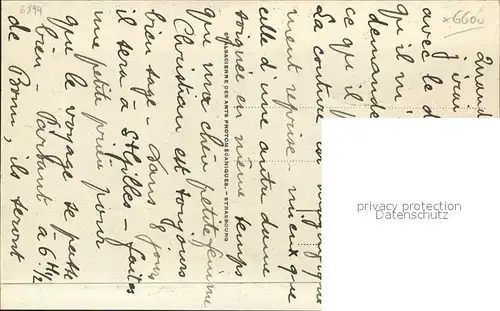 Quand
j'irai
avec le d
qu'il m'
demande
ce qu'il
La couture magnifique
ment reprise - mieux que
celle d'une autre dame
soignée en même temps
que ma chère petite femme
Christian est toujours
bien sage - Dans 8 jours
il sera à St Gilles - faites
une petite prière pour
que le voyage se passe
bien - Partant à 6 H 1/2
de Bonn, ils seront
Cie ALSACIENNE DES ARTS PHOTOMÉCANIQUES. - STRASBOURG
6899
x6600
privacy protection
Datenschutz